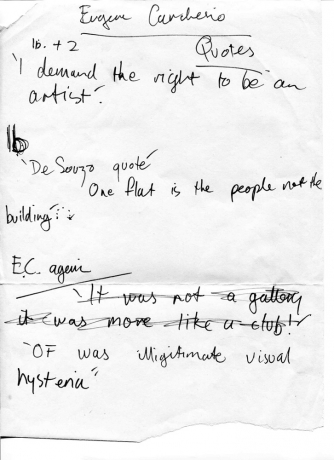 Eugene Carchesio
1b. + 2 Quotes
"I demand the right to be an
artist".
1b
"De Souzo quote"
One flat is the people not the
building"
E.C. again
"It was not a gallery
it was more like a club!"
"OF was illigitimate visual
hysteria"